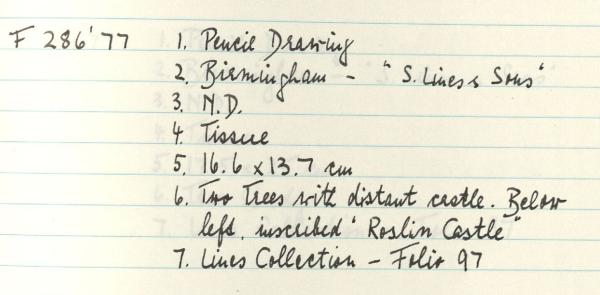 F 286'77 1. Pencil Drawing
2. Birmingham - "S. Lines & Sons"
3. N.D.
4. Tissue
5. 16.6 x 13.7 cm
6. Two Trees with distant castle. Below
left, inscribed "Roslin Castle"
7. Lines Collection - Folio 97